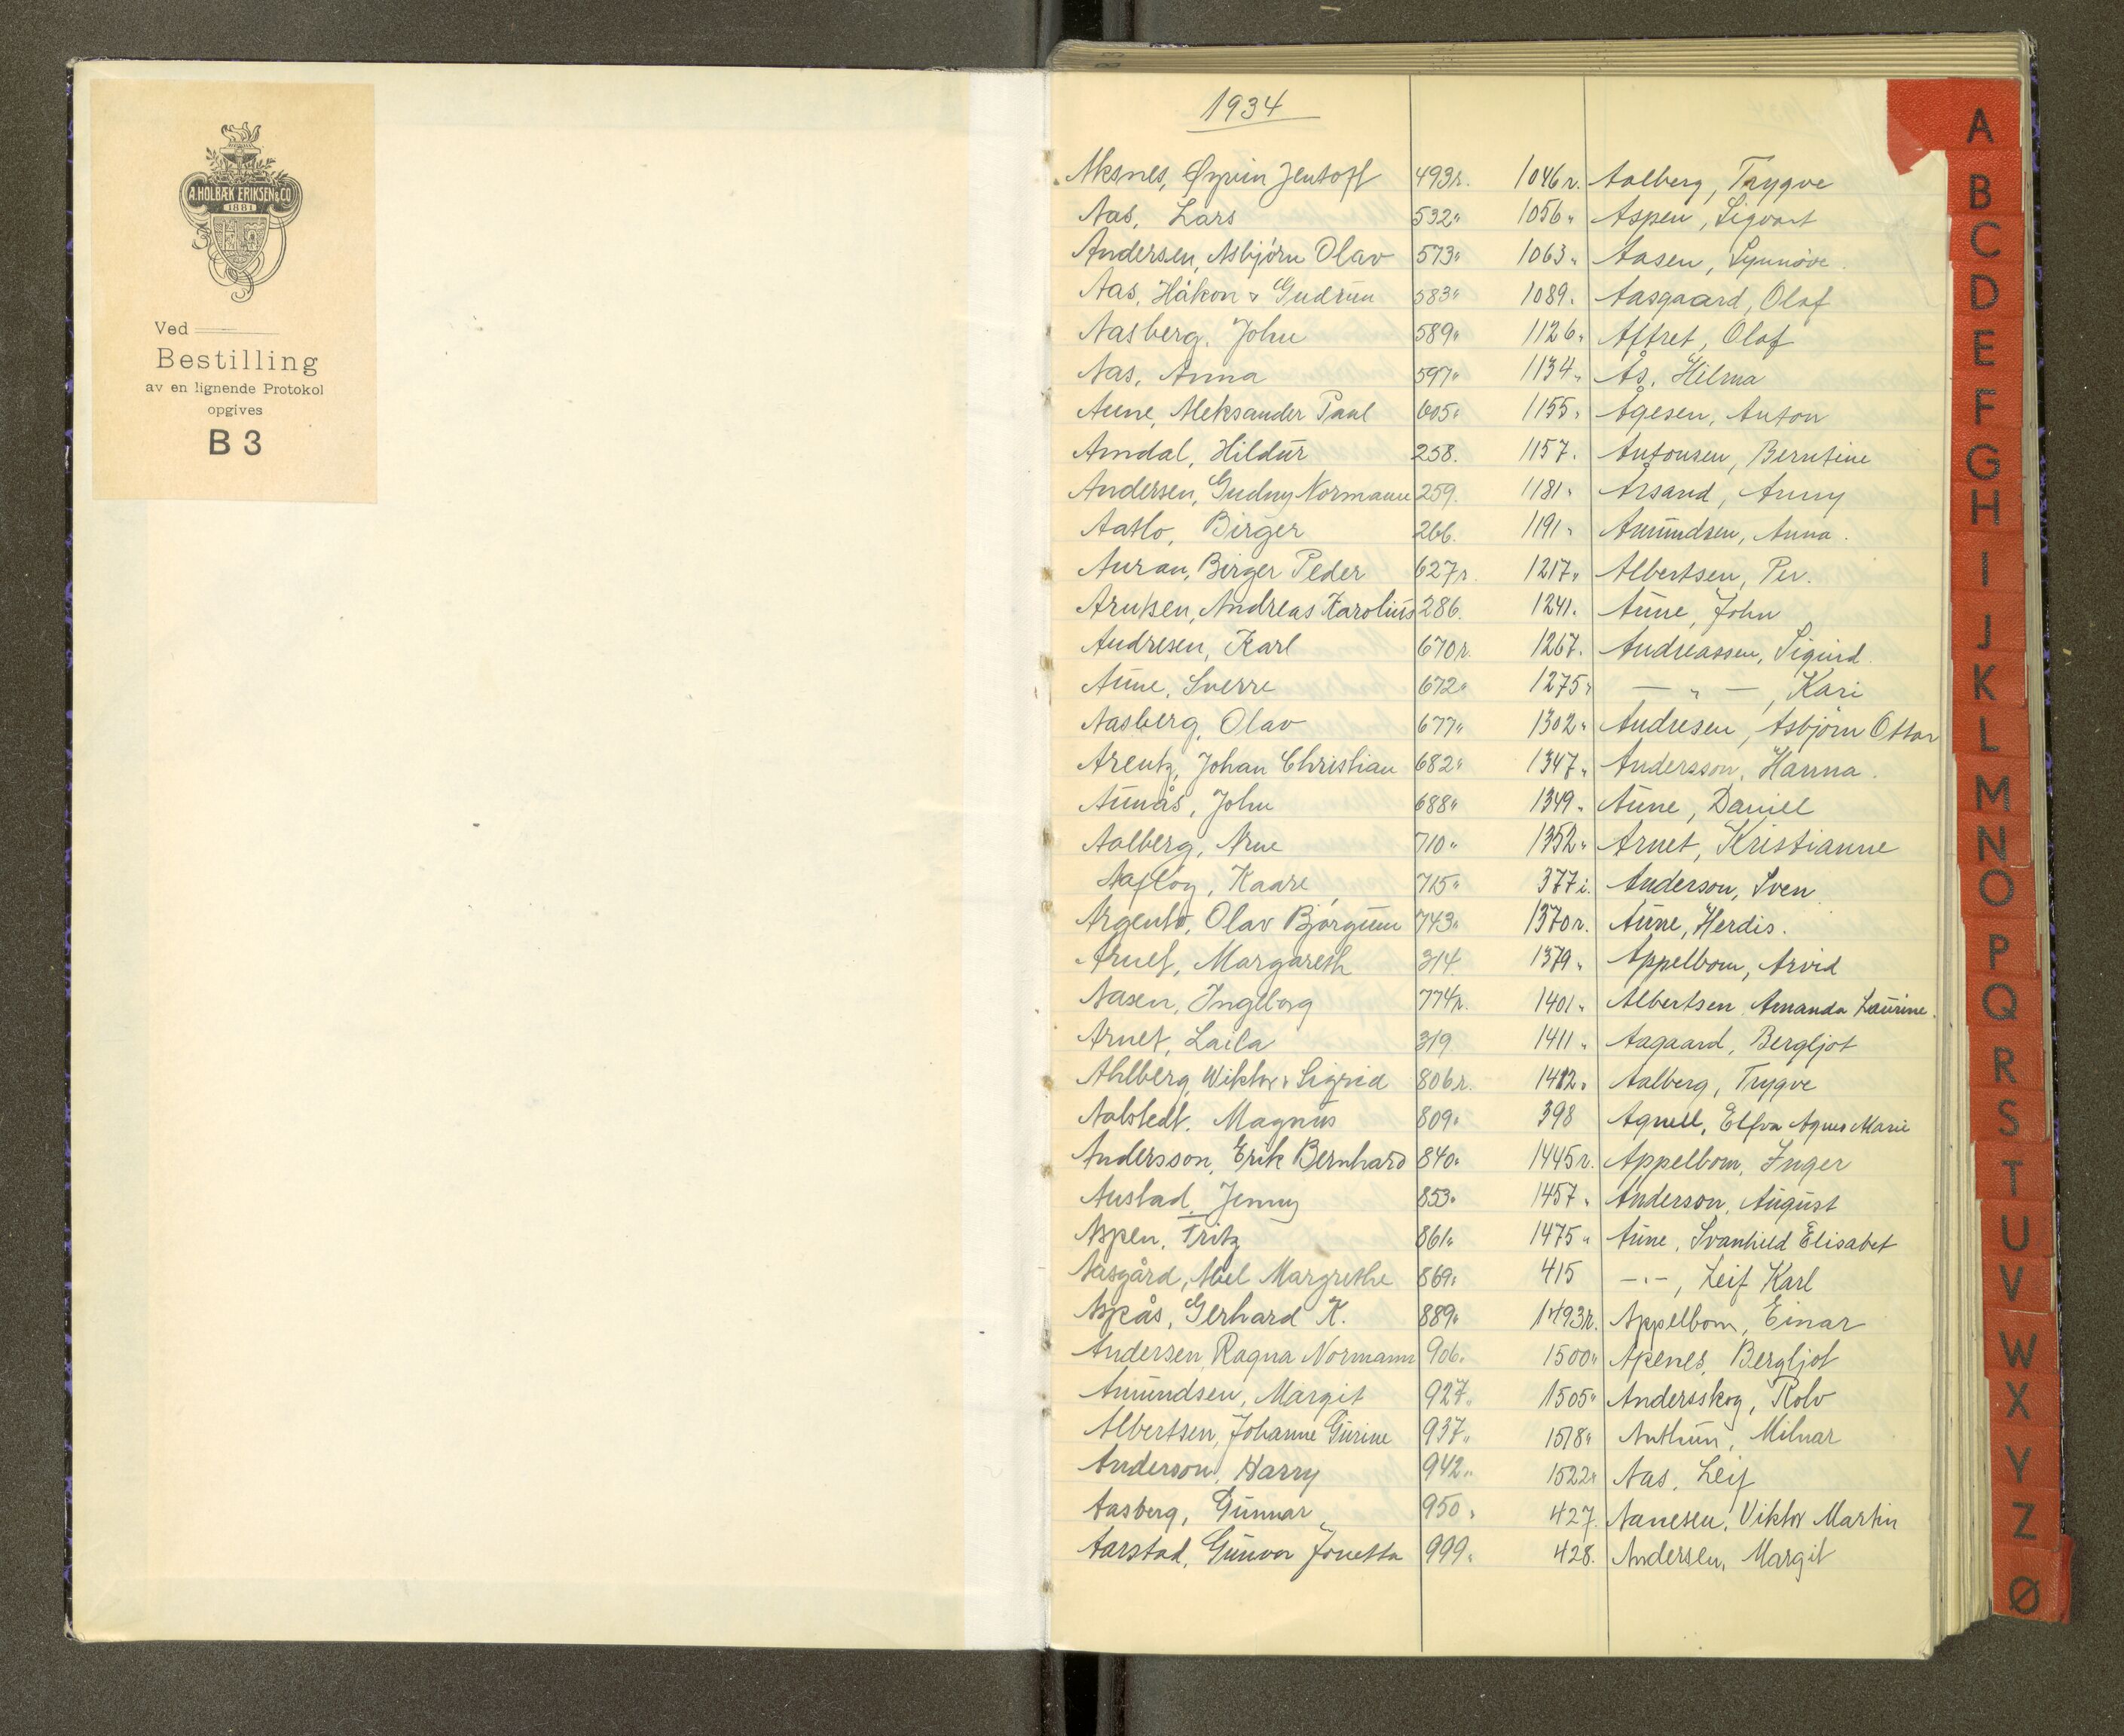 A. HOLBÆK ERIKSEN & CO
1881
Ved
Bestilling
av en lignende Protokol
opgives
B 3
1934
Aksnes, Øyvin Jentoft 493r. 1046r. Aalberg, Trygve
Aas, Lars 532" 1056" Aspen, Sigvart
Andersen, Asbjørn Olav 573" 1063" Aasen, Synnøve
Aas, Håkon & Gudrun 583" 1089. Aasgaard, Olaf
Aasberg, John 589" 1126" Affret, Olaf
Aas, Anna 597" 1134" Ås, Hilma
Aune, Aleksander Paul 605" 1155" Ågesen, Anton
Amdal, Hildur 258. 1157. Antonsen, Berntine
Andersen, Gudny Normann 259. 1181" Årsand, Anny
Aatlo, Birger 266. 1191" Amundsen, Anna.
Auran, Birger Peder 627r. 1217" Albertsen, Per.
Arntsen, Andreas Karolius 286. 1241. Aune, John
Andresen, Karl 670r. 1267. Andreassen, Sigurd
Aune, Sverre 672" 1275" — " —, Kari
Aasberg, Olav 677" 1302" Andresen, Asbjørn Ottar
Arentz, Johan Christian 682" 1347" Andersson, Hanna.
Aunås, John 688" 1349" Aune, Daniel
Aalberg, Arne 710" 1352" Arnet, Kristianne
Aafloy, Kaare 715" 377i. Anderson, Sven
Argento, Olav Bjørgum 743" 1370r. Aune, Herdis.
Arnet, Margareth 314 1379" Appelbom, Arvid
Aasen, Ingeborg 774r. 1401" Albertsen, Amanda Laurine.
Arnet, Laila 319 1411" Aagaard, Bergljot
Ahlberg, Wiktor & Sigrid 806r. 1412" Aalberg, Trygve
Aalstedt, Magnus 809" 398 Agnell, Elfva Agnes Marie
Andersson, Erik Bernhard 840" 1445r. Appelbom, Inger
Austad, Jenny 853" 1457" Anderson, August
Aspen, Fritz 861" 1475" Aune, Svanhild Elisabet
Aasgård, Abel Margrethe 869" 415 — " —, Leif Karl
Aspås, Gerhard K. 889" 1493r. Appelbom, Einar
Andersen, Ragna Normann 906" 1500" Apenes, Bergljot
Amundsen, Margit 927" 1505" Andersskog, Rolv
Albertsen, Johanne Gurine 937" 1518" Anthun, Milnar
Anderson, Harry 942" 1522" Aas, Leif
Aasberg, Gunnar 950" 427. Aanesen, Viktor Martin
Aarstad, Gunvor Jonetta 999" 428. Andersen, Margit
A
B
C
D
E
F
G
H
I
J
K
L
M
N
O
P
Q
R
S
T
U
V
W
X
Y
Z
Ø